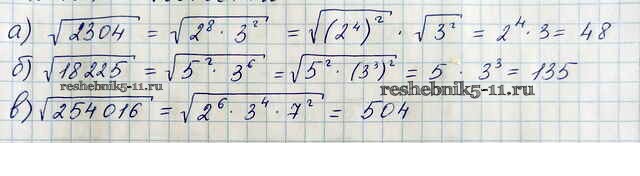 а) √2304 = √2⁸ · 3² = √(2⁴)² · √3² = 2⁴ · 3 = 48
б) √18225 = √5² · 3⁶ = √5² · (3³)² = 5 · 3³ = 135
reshebnik5-11.ru
reshebnik5-11.ru
в) √254016 = √2⁶ · 3⁴ · 7² = 504